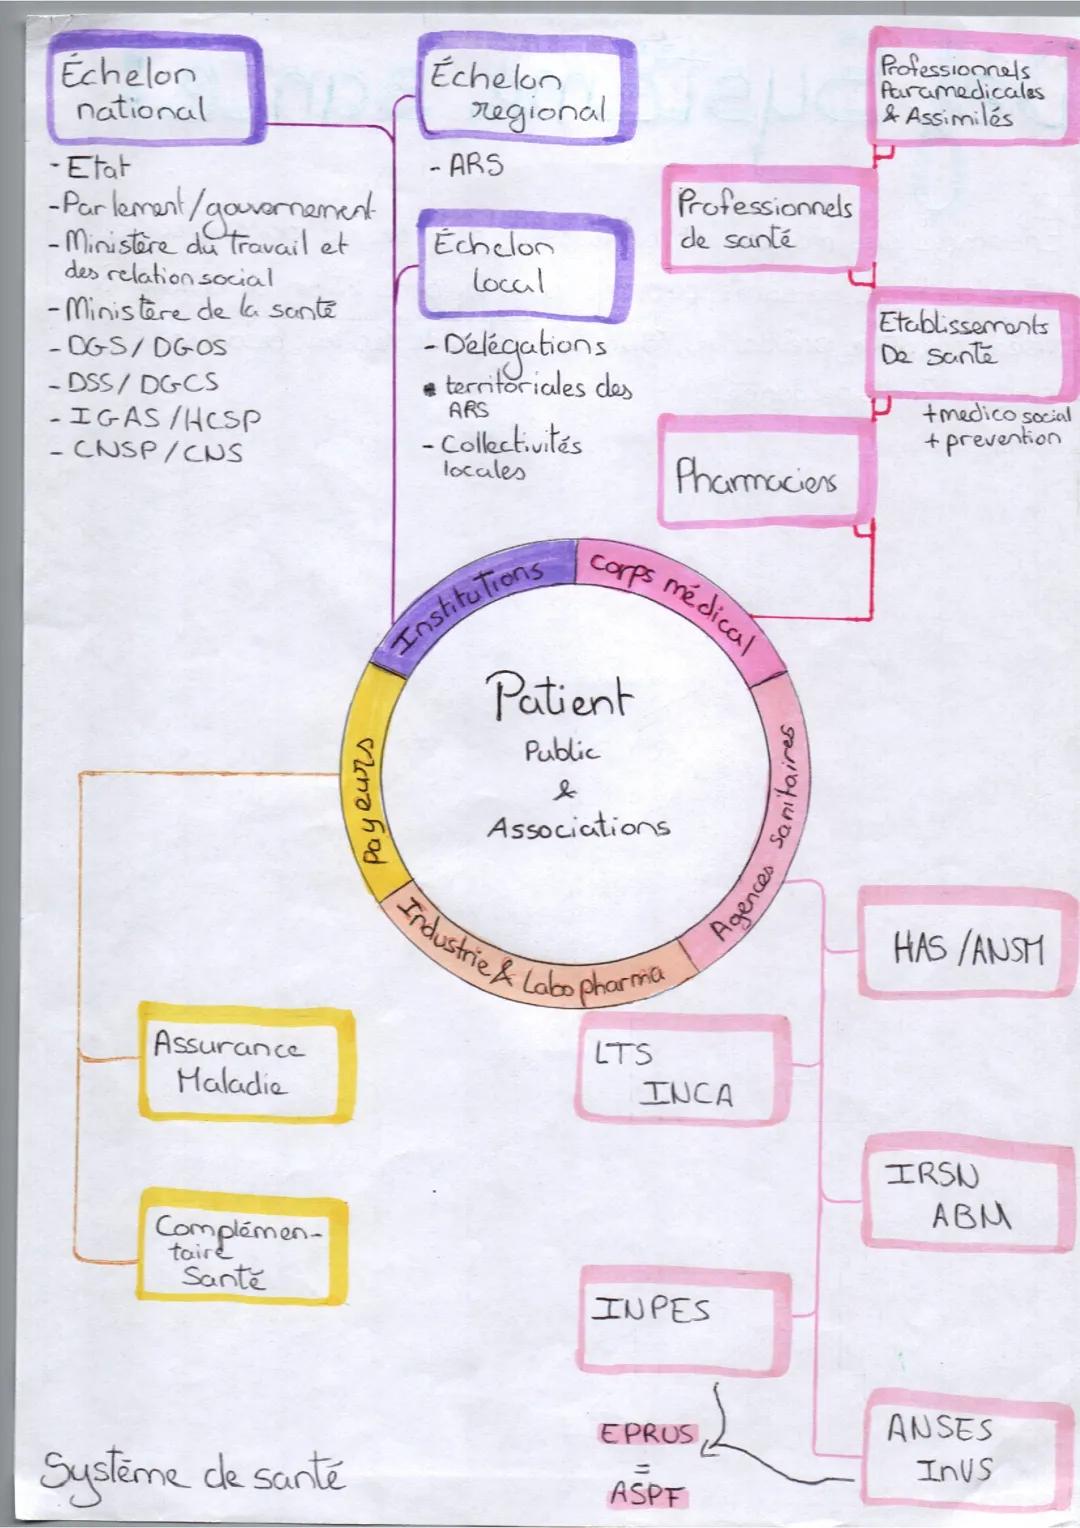 Échelon
national
- Etat
- Parlement/gouvernement
- Ministère du Travail et
des relation social
- Ministère de la santé
- DGS/DGOS
- DSS/DGCS
- IGAS/HCSP
- CNSP/CNS
Échelon
regional
- ARS
Échelon
local
- Délégations
territoriales des
ARS
- Collectivités
locales
Professionnels
Paramedicales
& Assimilés
Professionnels
de santé
Etablissements
De santé
+ medico social
+ prevention
Pharmaciens
Institutions
Corps médical
Agences sanitaires
Industrie & Labo pharma
Payeurs
Patient
Public
&
Associations
Assurance
Maladie
Complémen-
taire
Santé
HAS/ANSM
LTS
INCA
IRSN
ABM
INPES
ANSES
InVS
EPRUS
=
ASPF
Système de santé